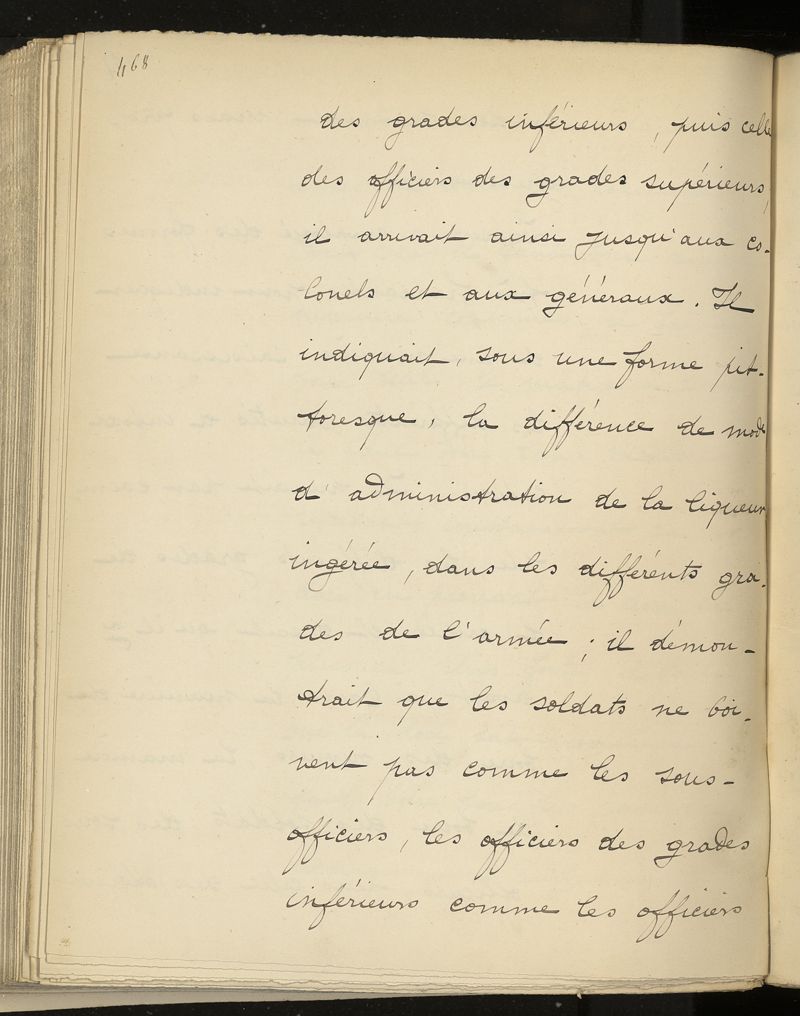 468
des grades inférieurs, puis celle
des officiers des grades supérieurs,
il arrivait ainsi jusqu'aux co-
lonels et aux généraux. Il
indiquait, sous une forme pit-
toresque, la différence de mode
d'administration de la liqueur
ingérée, dans les différents gra-
des de l'armée ; il démon-
trait que les soldats ne boi-
vent pas comme les sous-
officiers, les officiers des grades
inférieurs comme les officiers